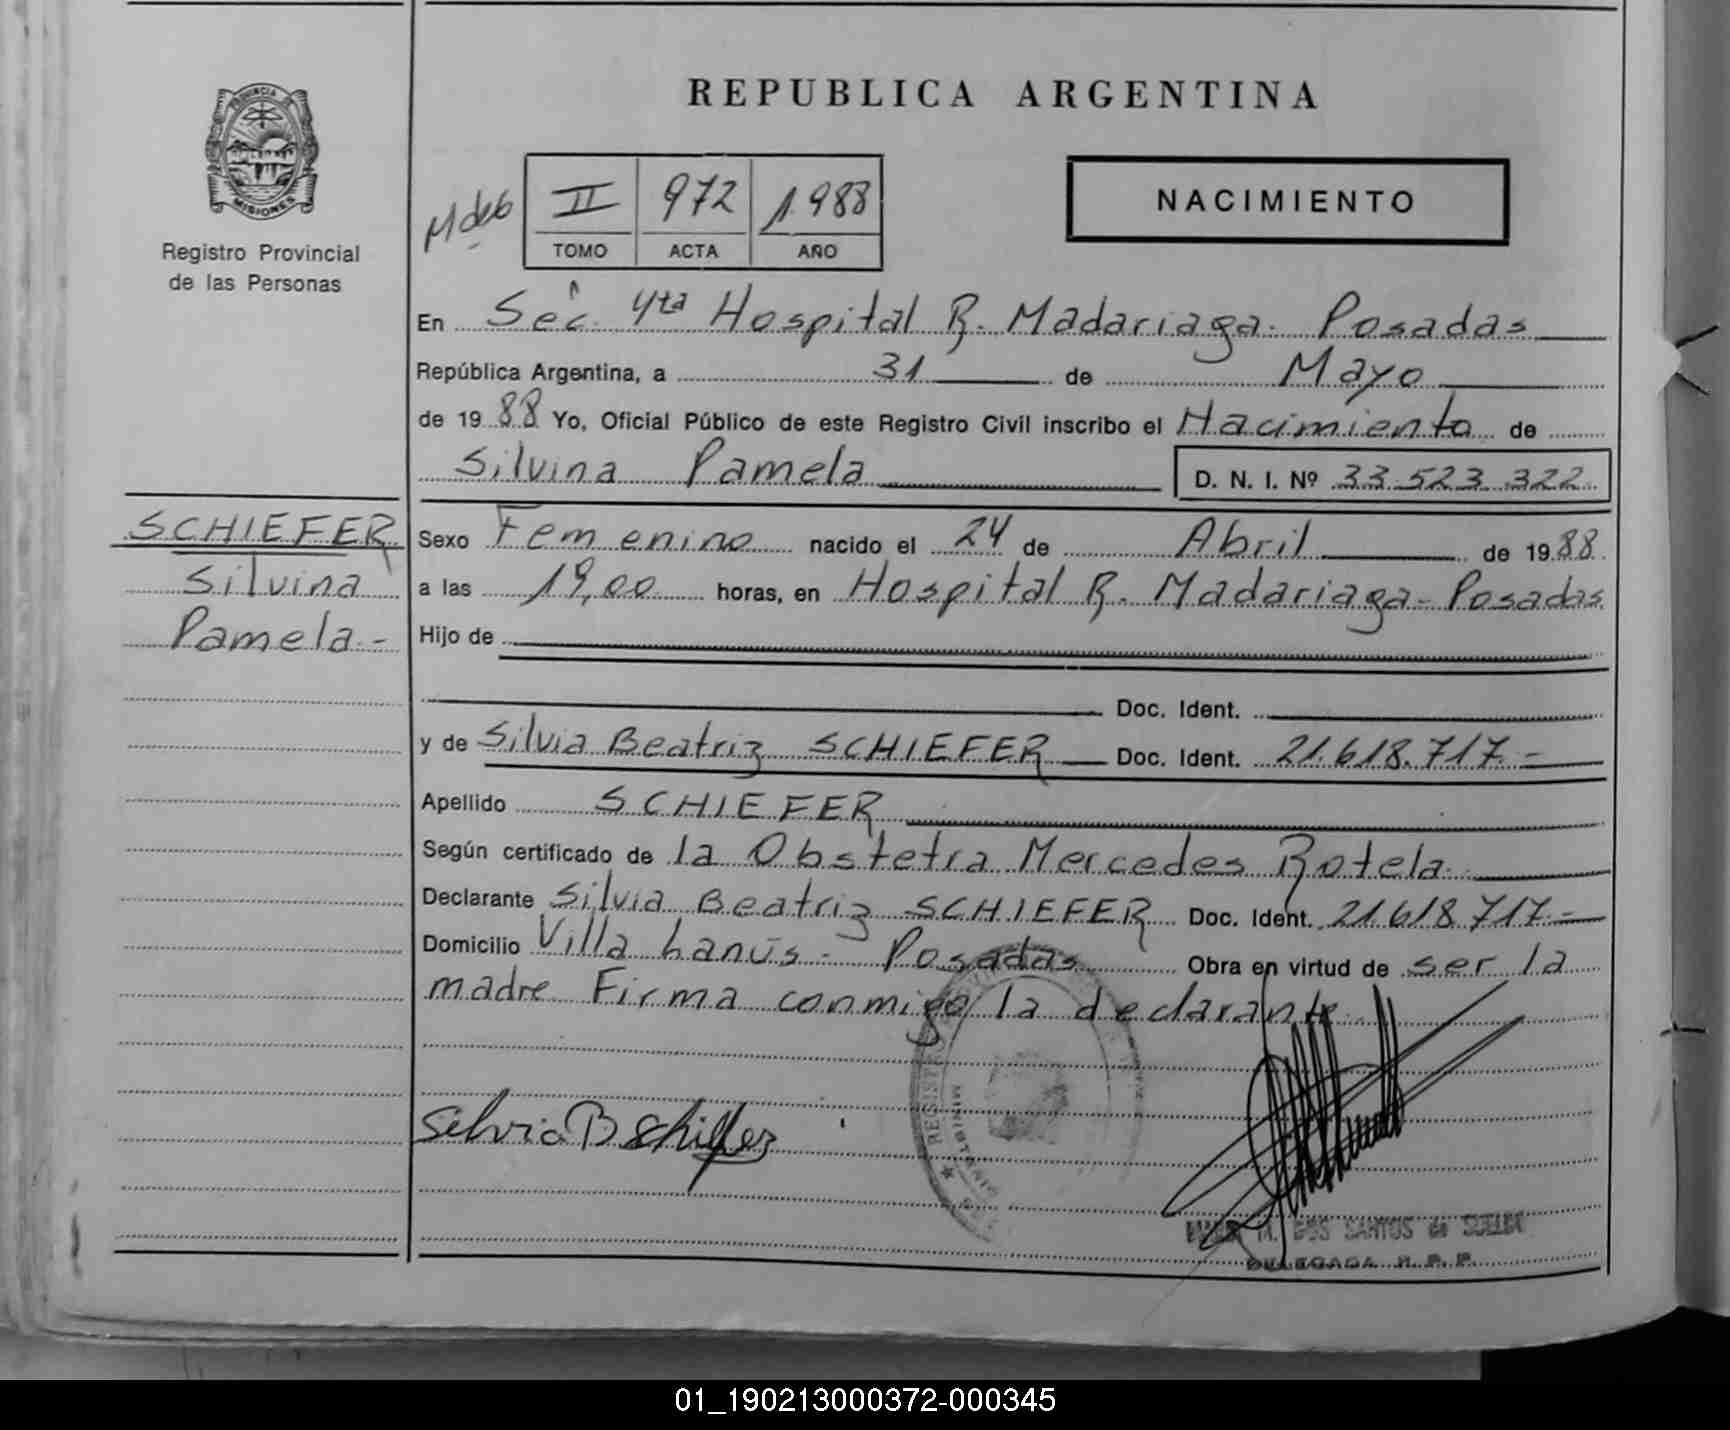 PROVINCIA DE
MISIONES
Registro Provincial
de las Personas
SCHIEFER
Silvina
Pamela.-
REPUBLICA ARGENTINA
II 972 1988
TOMO ACTA AÑO
NACIMIENTO
En Sec. 4ta Hospital R. Madariaga. Posadas
República Argentina, a 31 de Mayo
de 1988 Yo, Oficial Público de este Registro Civil inscribo el Nacimiento de
Silvina Pamela D. N. I. Nº 33.523.322
Sexo Femenino nacido el 24 de Abril de 1988
a las 19,00 horas, en Hospital R. Madariaga - Posadas
Hijo de
Doc. Ident.
y de Silvia Beatriz SCHIEFER Doc. Ident. 21.618.717.-
Apellido SCHIEFER
Según certificado de la Obstetra Mercedes Rotela.
Declarante Silvia Beatriz SCHIEFER Doc. Ident. 21.618.717.-
Domicilio Villa Lanús - Posadas Obra en virtud de ser la
madre. Firma conmigo la declarante.
Silvia B Schiffer
M. DOS SANTOS de
DELEGADA R. P. P.
01_190213000372-000345